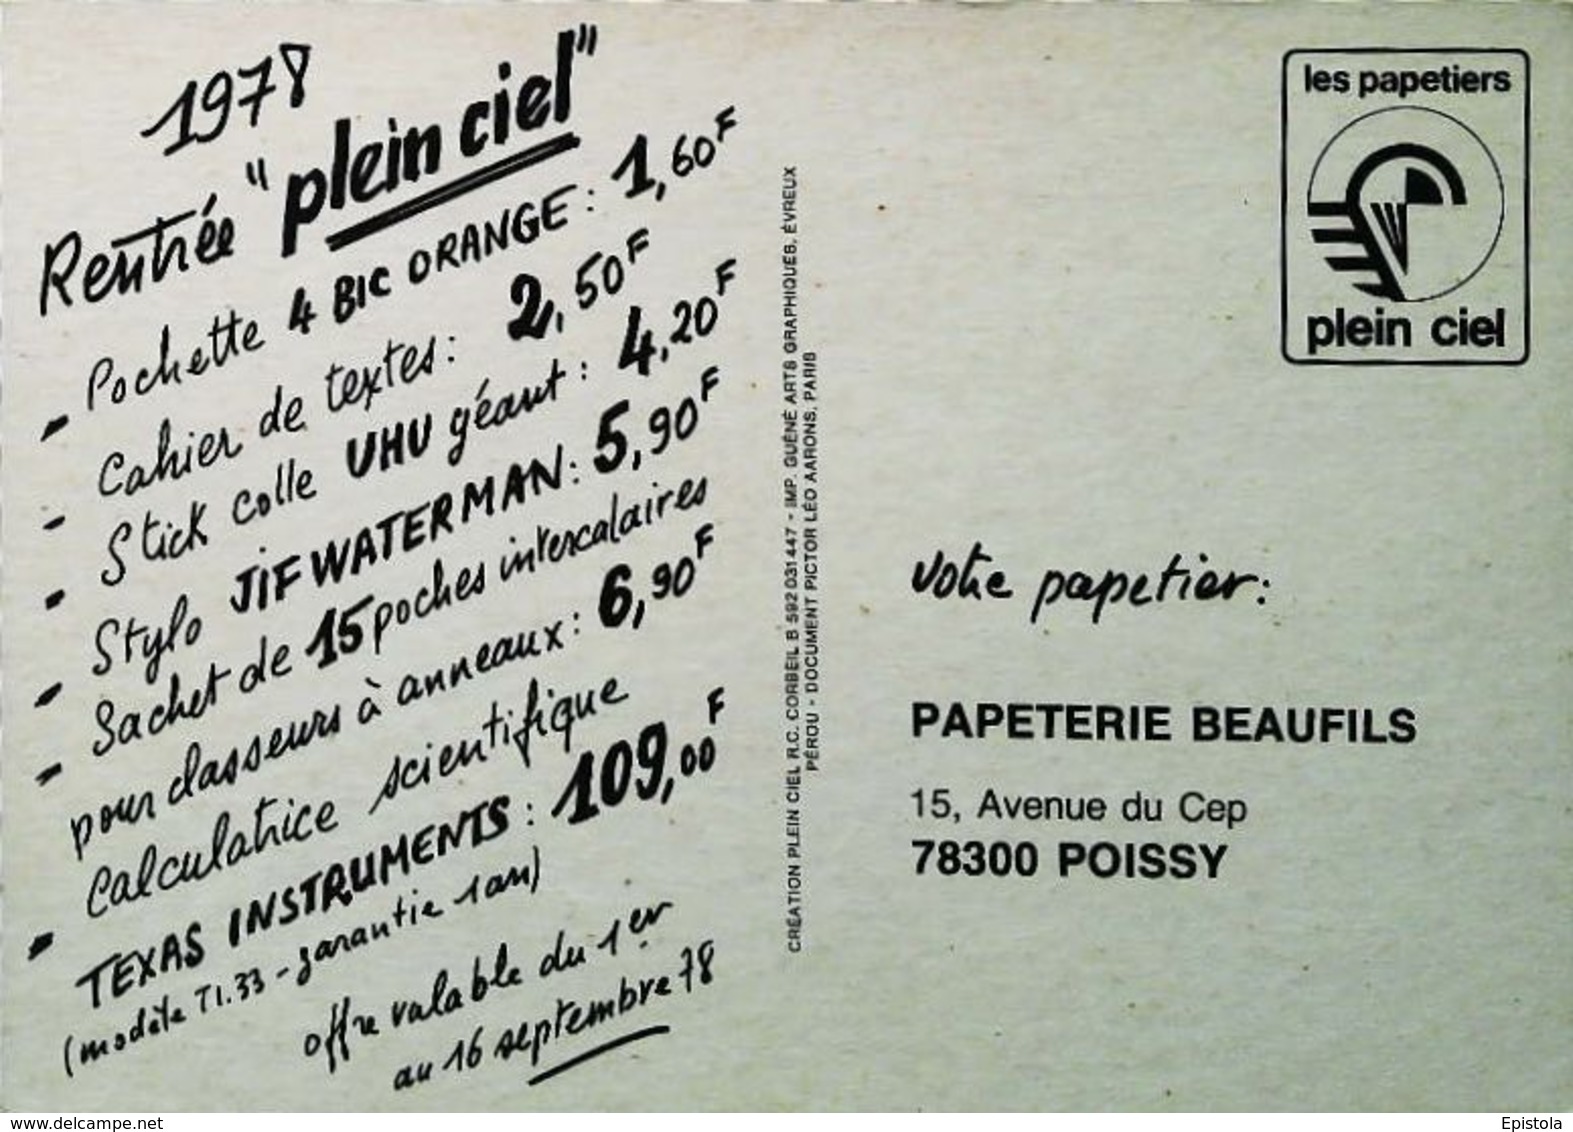 1978
Rentrée "plein ciel"
- Pochette 4 BIC ORANGE : 1,60F
- Cahier de textes : 2,50F
- Stick colle UHU géant : 4,20F
- Stylo JIF WATERMAN : 5,90F
- Sachet de 15 poches intercalaires
pour classeurs à anneaux : 6,90F
- Calculatrice scientifique
TEXAS INSTRUMENTS : 109,00F
(modèle TI.33 - garantie 1 an)
offre valable du 1er
au 16 septembre 78
CRÉATION PLEIN CIEL R.C. CORBEIL B 592 031 447 - IMP. GUÉNÉ ARTS GRAPHIQUES, ÉVREUX
PÉROU - DOCUMENT PICTOR LÉO AARONS, PARIS
les papetiers
plein ciel
votre papetier :
PAPETERIE BEAUFILS
15, Avenue du Cep
78300 POISSY
www.delcampe.net
Epistola